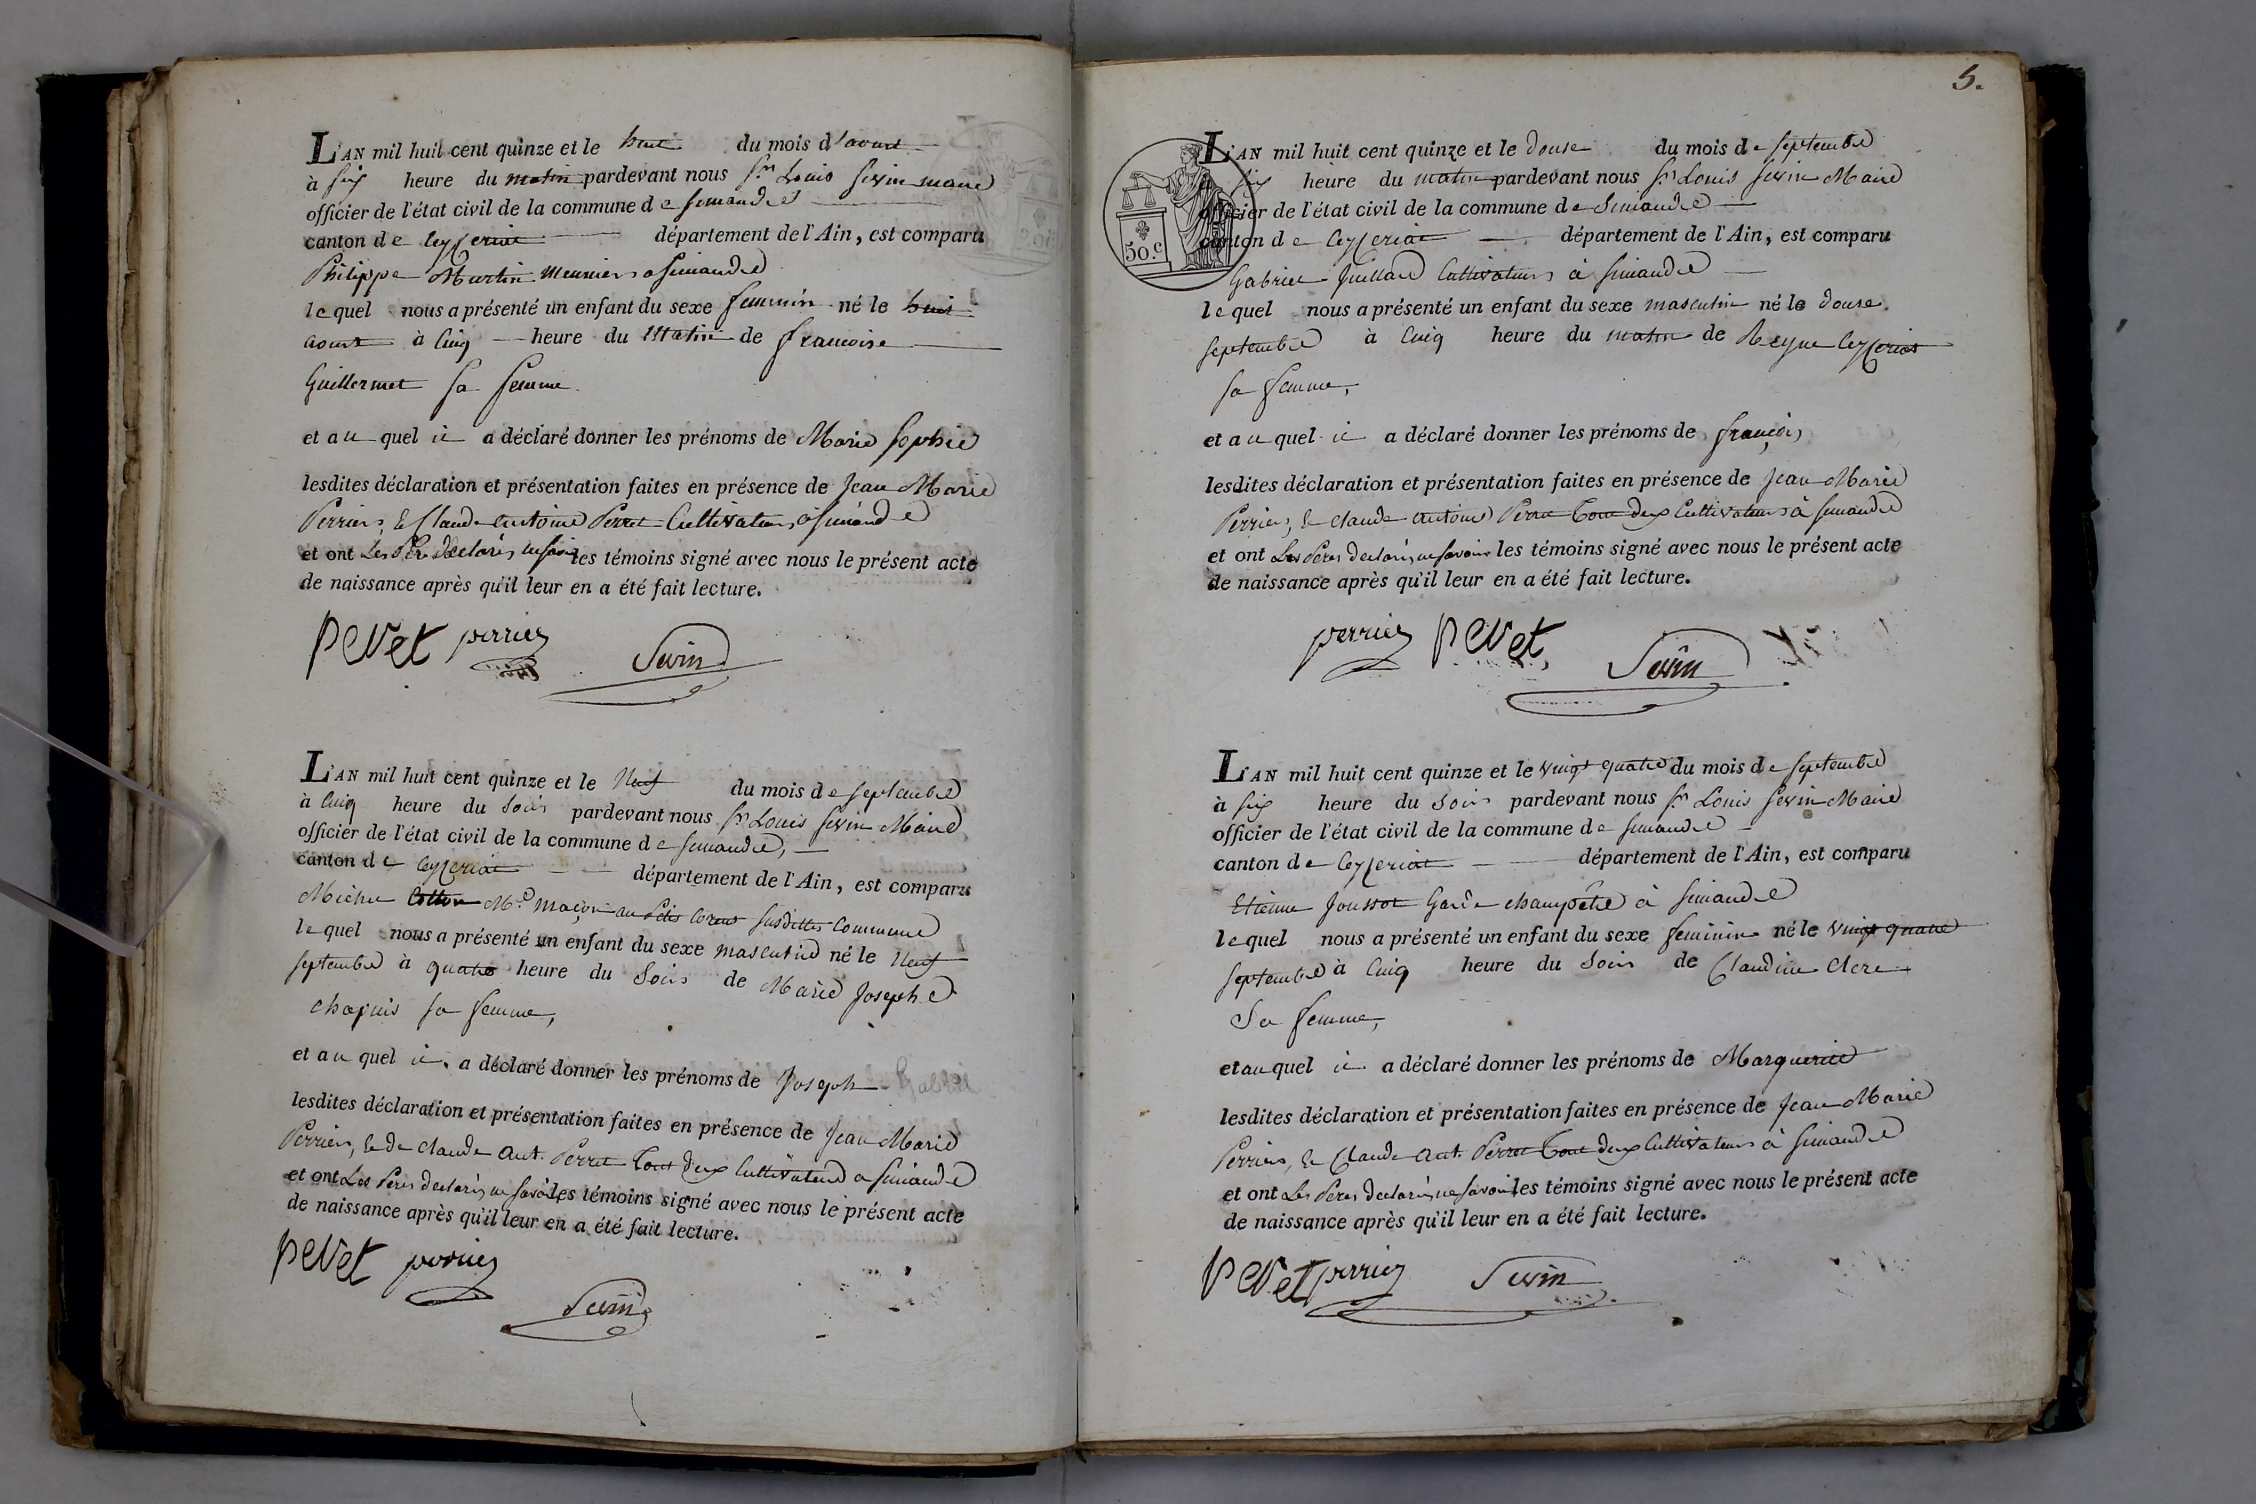 L'AN mil huit cent quinze et le huit du mois d'aoust
à six heure du matin pardevant nous Sr. Louis Sevin maire
officier de l'état civil de la commune de Simandre
canton de Ceyzeriat département de l'Ain, est comparu
Philippe Martin Meunier a Simandre
lequel nous a présenté un enfant du sexe feminin né le huit
aoust à Cinq heure du Matin de francoise
Guillermet sa femme
et au quel il a déclaré donner les prénoms de Marie Sophie
lesdites déclaration et présentation faites en présence de Jean Marie
Perrier, & Claude antoine Perret Cultivateurs à Simandre
et ont Les Pere declarés les témoins signé avec nous le présent acte
de naissance après qu'il leur en a été fait lecture.
Peret perrier
Sevin
L'AN mil huit cent quinze et le Neuf du mois de septembre
à Cinq heure du Soir pardevant nous Sr. Louis Sevin Maire
officier de l'état civil de la commune de Simandre,
canton de Ceyzeriat département de l'Ain, est comparu
Michel Cotton Md. maçon au Petit Corent susditte Commune
lequel nous a présenté un enfant du sexe masculin né le Neuf
septembre à quatre heure du Soir de Marie Josephe
chapuis sa femme,
et au quel il a déclaré donner les prénoms de Joseph
lesdites déclaration et présentation faites en présence de Jean Marie
Perrier, & de Claude Ant. Perret Tout deux Cultivateur a Simandre
et ont Les Peres declarés ne savoir les témoins signé avec nous le présent acte
de naissance après qu'il leur en a été fait lecture.
Peret perrier
Sevin
5.
L'AN mil huit cent quinze et le douse du mois de septembre
à six heure du matin pardevant nous Sr. Louis Sevin Maire
officier de l'état civil de la commune de Simandre
canton de Ceyzeriat département de l'Ain, est comparu
50.c
Gabriel Juillard Cultivateur à Simandre
lequel nous a présenté un enfant du sexe masculin né le douse
septembre à Cinq heure du matin de Reyne Ceyzeriat
sa femme,
et au quel il a déclaré donner les prénoms de françois
lesdites déclaration et présentation faites en présence de Jean Marie
Perrier, & Claude antoine Perret Tout deux Cultivateurs à Simandre
et ont Les Peres declarés ne savoir les témoins signé avec nous le présent acte
de naissance après qu'il leur en a été fait lecture.
perrier Peret
Sevin
L'AN mil huit cent quinze et le vingt quatre du mois de septembre
à six heure du Soir pardevant nous Sr. Louis Sevin Maire
officier de l'état civil de la commune de Simandre
canton de Ceyzeriat département de l'Ain, est comparu
Etienne Joussot Garde champêtre à Simandre
lequel nous a présenté un enfant du sexe feminin né le vingt quatre
septembre à Cinq heure du Soir de Claudine Clere
Sa femme,
et au quel il a déclaré donner les prénoms de Marguerite
lesdites déclaration et présentation faites en présence de Jean Marie
Perrier, & Claude Ant. Perret Tout deux Cultivateurs à Simandre
et ont Les Peres declarés ne savoir les témoins signé avec nous le présent acte
de naissance après qu'il leur en a été fait lecture.
Peret perrier Sevin